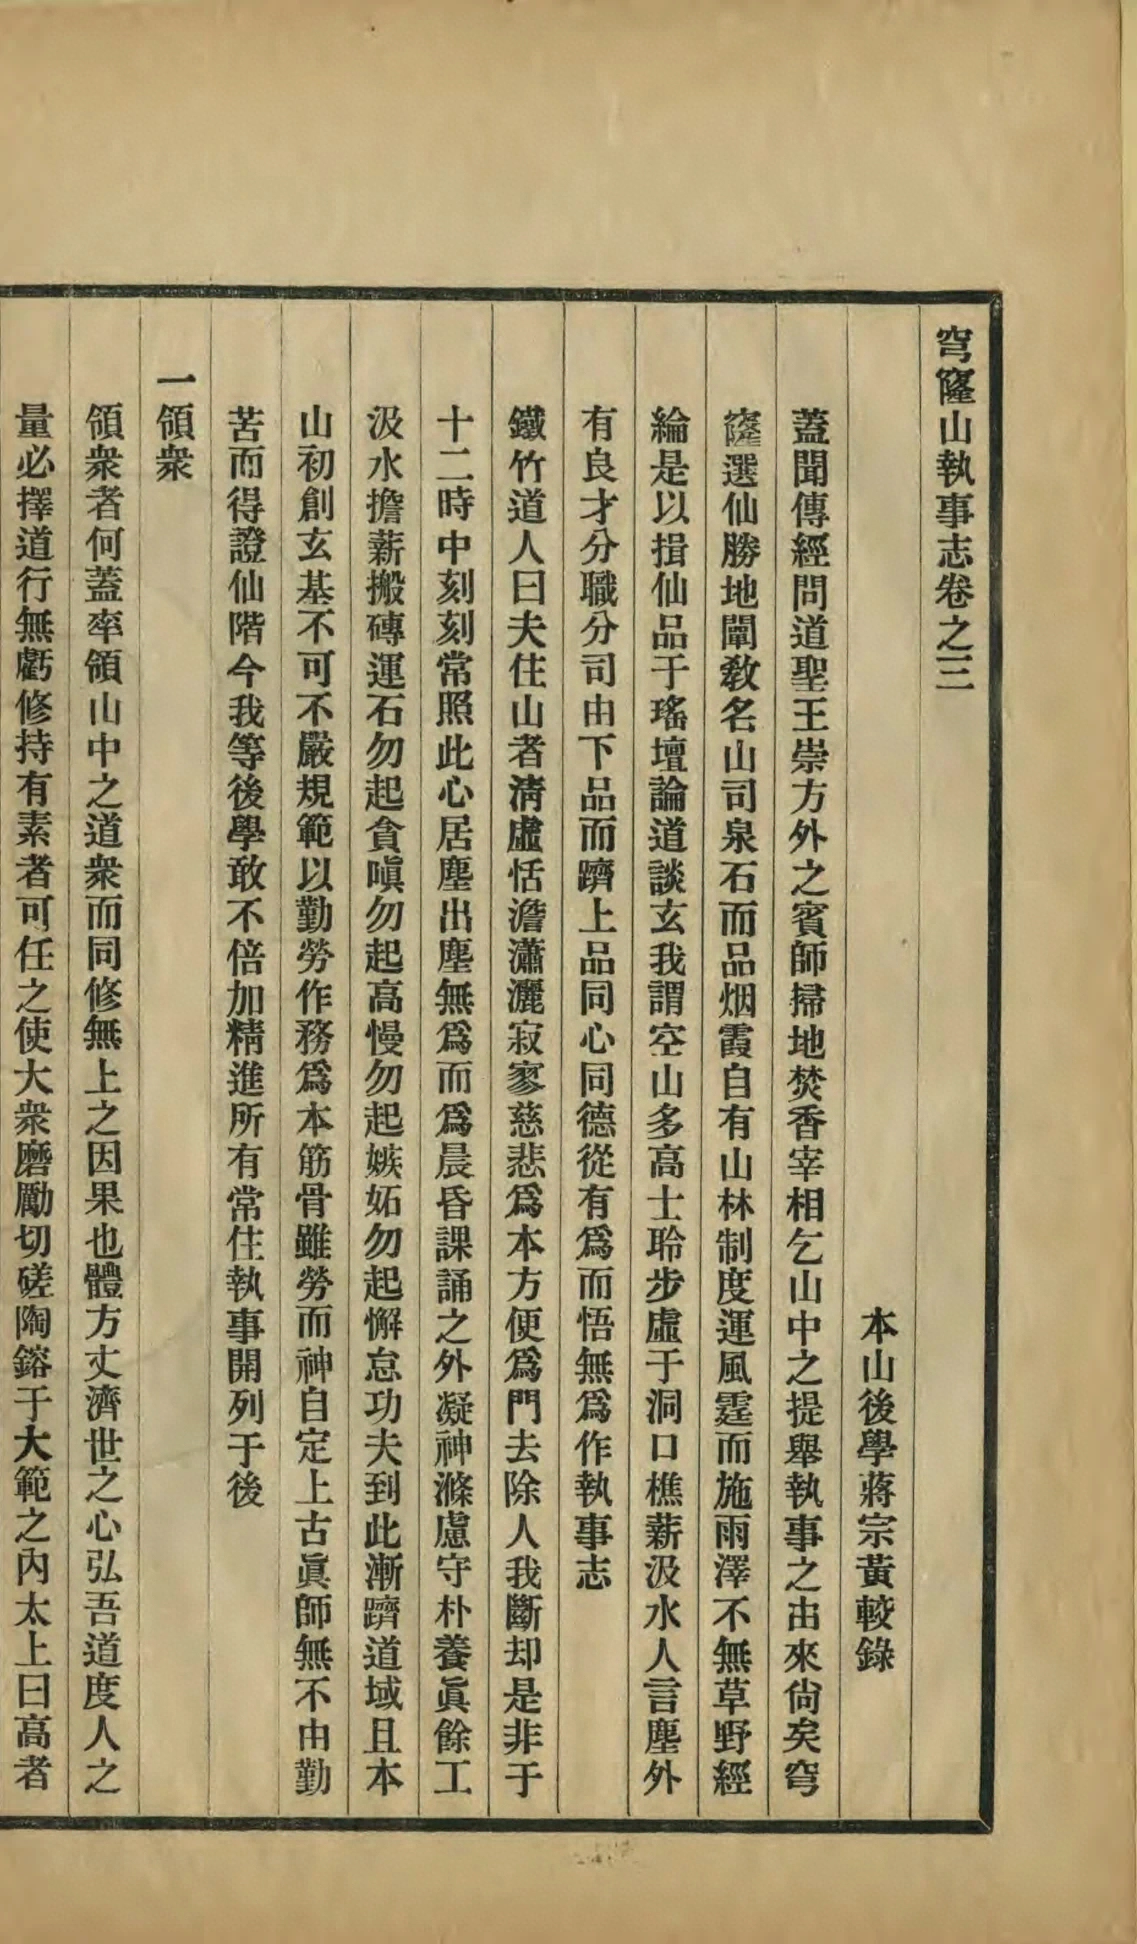 穹窿山執事志卷之三
本山後學蔣宗黃較錄
蓋聞傳經問道聖王崇方外之賓師掃地焚香宰相乞山中之提舉執事之由來尙矣穹
窿選仙勝地闡敎名山司泉石而品烟霞自有山林制度運風霆而施雨澤不無草野經
綸是以揖仙品于瑤壇論道談玄我謂空山多高士聆步虛于洞口樵薪汲水人言塵外
有良才分職分司由下品而躋上品同心同德從有爲而悟無爲作執事志
鐵竹道人曰夫住山者淸虛恬澹瀟灑寂寥慈悲爲本方便爲門去除人我斷却是非于
十二時中刻刻常照此心居塵出塵無爲而爲晨昏課誦之外凝神滌慮守朴養眞餘工
汲水擔薪搬磚運石勿起貪嗔勿起高慢勿起嫉妬勿起懈怠功夫到此漸躋道域且本
山初創玄基不可不嚴規範以勤勞作務爲本筋骨雖勞而神自定上古眞師無不由勤
苦而得證仙階今我等後學敢不倍加精進所有常住執事開列于後
一領衆
領衆者何蓋率領山中之道衆而同修無上之因果也體方丈濟世之心弘吾道度人之
量必擇道行無虧修持有素者可任之使大衆磨勵切磋陶鎔于大範之內太上曰高者